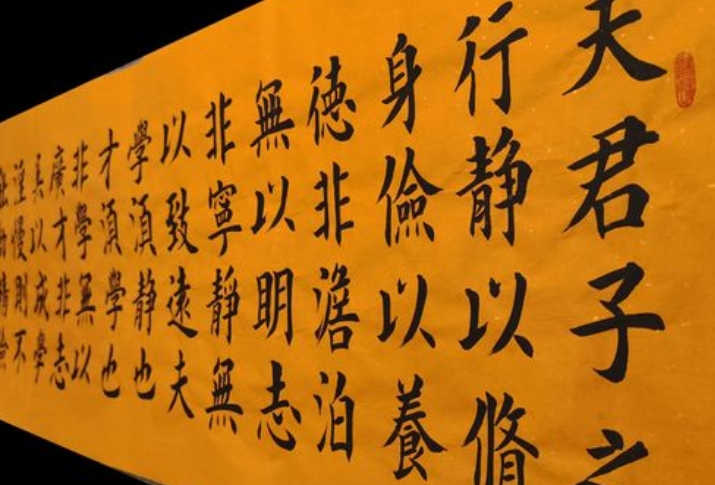 夫君子之
行静以脩
身儉以養
德非澹泊
無以明志
非寧靜無
以致遠夫
學湏静也
才湏學也
非學無以
廣才非志
以成學
慢則不